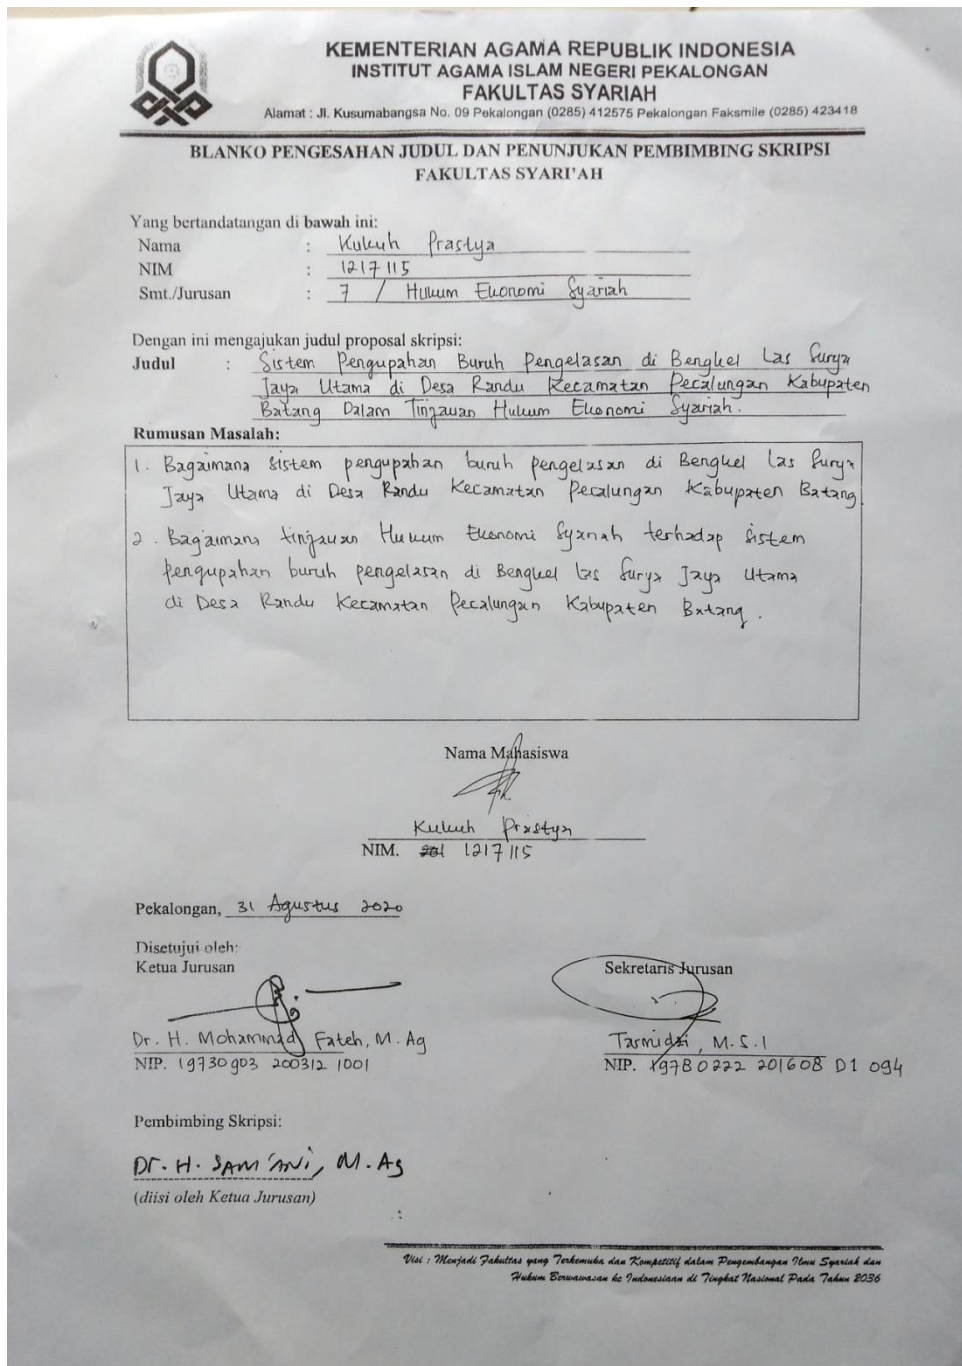 KEMENTERIAN AGAMA REPUBLIK INDONESIA
INSTITUT AGAMA ISLAM NEGERI PEKALONGAN
FAKULTAS SYARIAH
Alamat : Jl. Kusumabangsa No. 09 Pekalongan (0285) 412575 Pekalongan Faksmile (0285) 423418
BLANKO PENGESAHAN JUDUL DAN PENUNJUKAN PEMBIMBING SKRIPSI
FAKULTAS SYARI'AH
Yang bertandatangan di bawah ini:
Nama : Kukuh Prastya
NIM : 1217115
Smt./Jurusan : 7 / Hukum Ekonomi Syariah
Dengan ini mengajukan judul proposal skripsi:
Judul : Sistem Pengupahan Buruh Pengelasan di Bengkel Las Surya
Jaya Utama di Desa Randu Kecamatan Pecalungan Kabupaten
Batang Dalam Tinjauan Hukum Ekonomi Syariah.
Rumusan Masalah:
1. Bagaimana sistem pengupahan buruh pengelasan di Bengkel las Surya
Jaya Utama di Desa Randu Kecamatan Pecalungan Kabupaten Batang
2. Bagaimana tinjauan Hukum Ekonomi Syariah terhadap sistem
pengupahan buruh pengelasan di Bengkel las Surya Jaya Utama
di Desa Randu Kecamatan Pecalungan Kabupaten Batang.
Nama Mahasiswa
Kukuh Prastya
NIM. 1217115
Pekalongan, 31 Agustus 2020
Disetujui oleh:
Ketua Jurusan
Sekretaris Jurusan
Dr. H. Mohammad Fateh, M.Ag
NIP. 19730903 200312 1001
Tarmidzi, M.S.I
NIP. 19780222 201608 D1 094
Pembimbing Skripsi:
Dr. H. SAM'ANI, M.Ag
(diisi oleh Ketua Jurusan)
Visi : Menjadi Fakultas yang Terkemuka dan Kompetitif dalam Pengembangan Ilmu Syariah dan
Hukum Berwawasan ke Indonesiaan di Tingkat Nasional Pada Tahun 2036